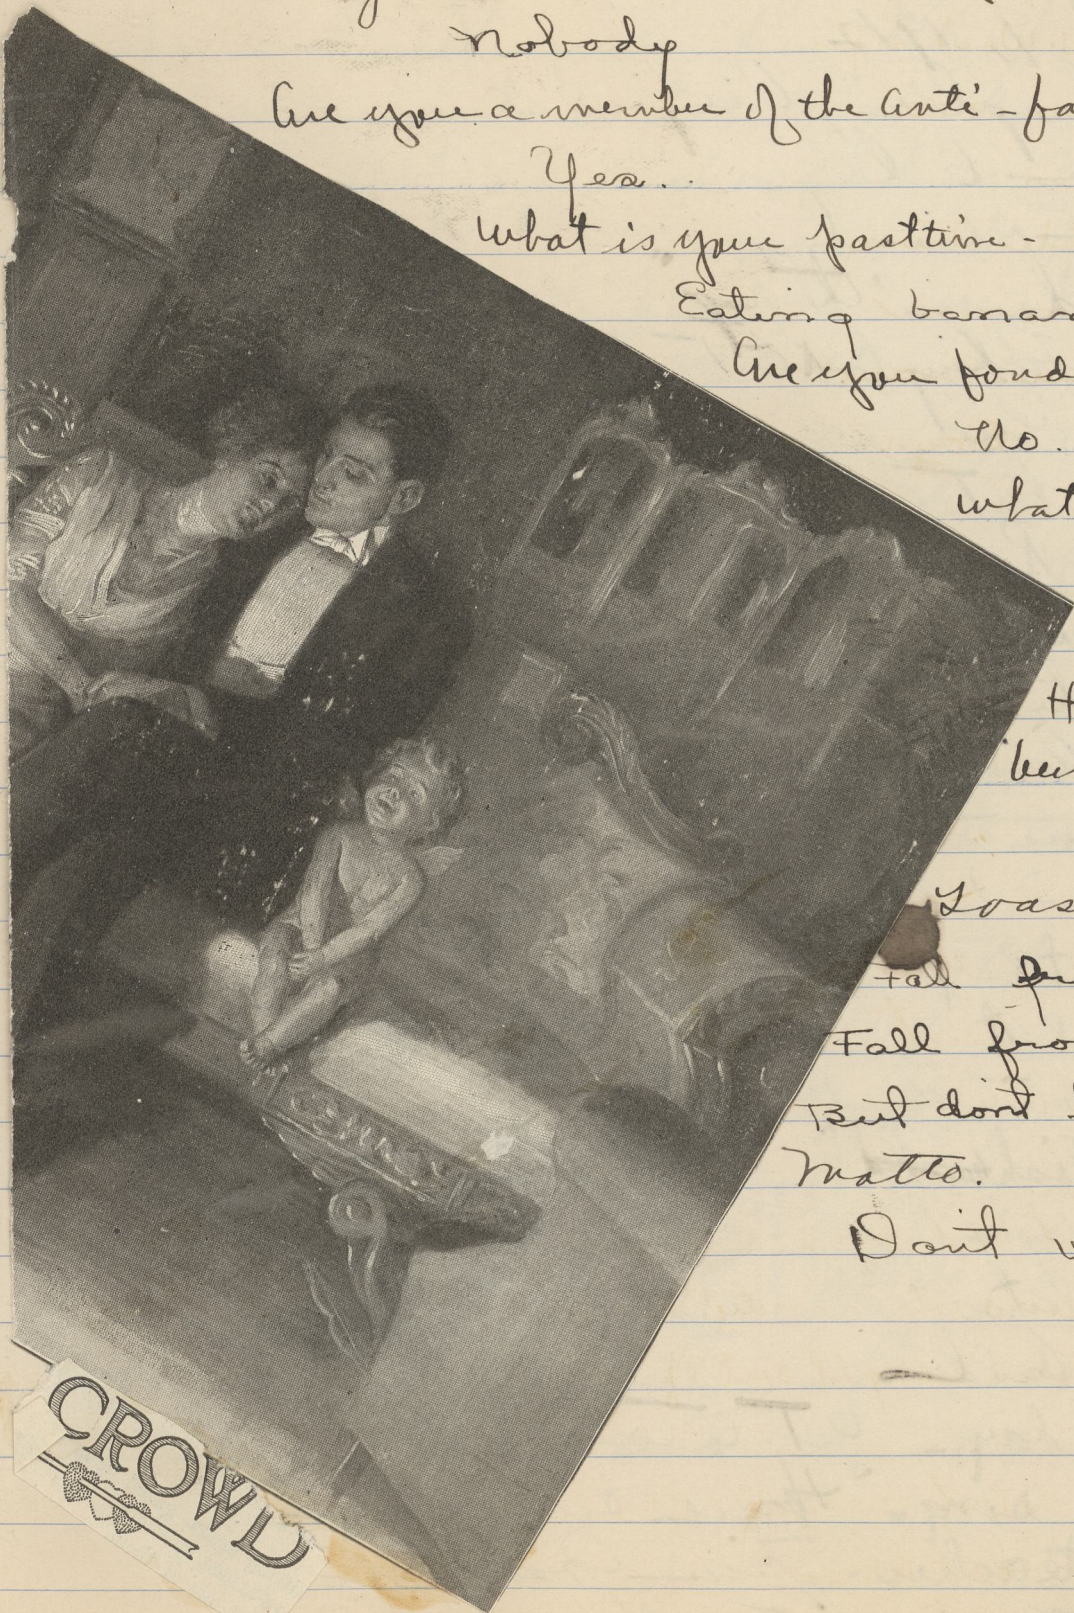 Nobody
Are you a member of the Anti-fa
Yes..
What is your pasttime-
Eating banan
Are you fond
No.
What
H
be
Toas
Fall fr
Fall fro
But dont
Motto.
Don't
CROWD